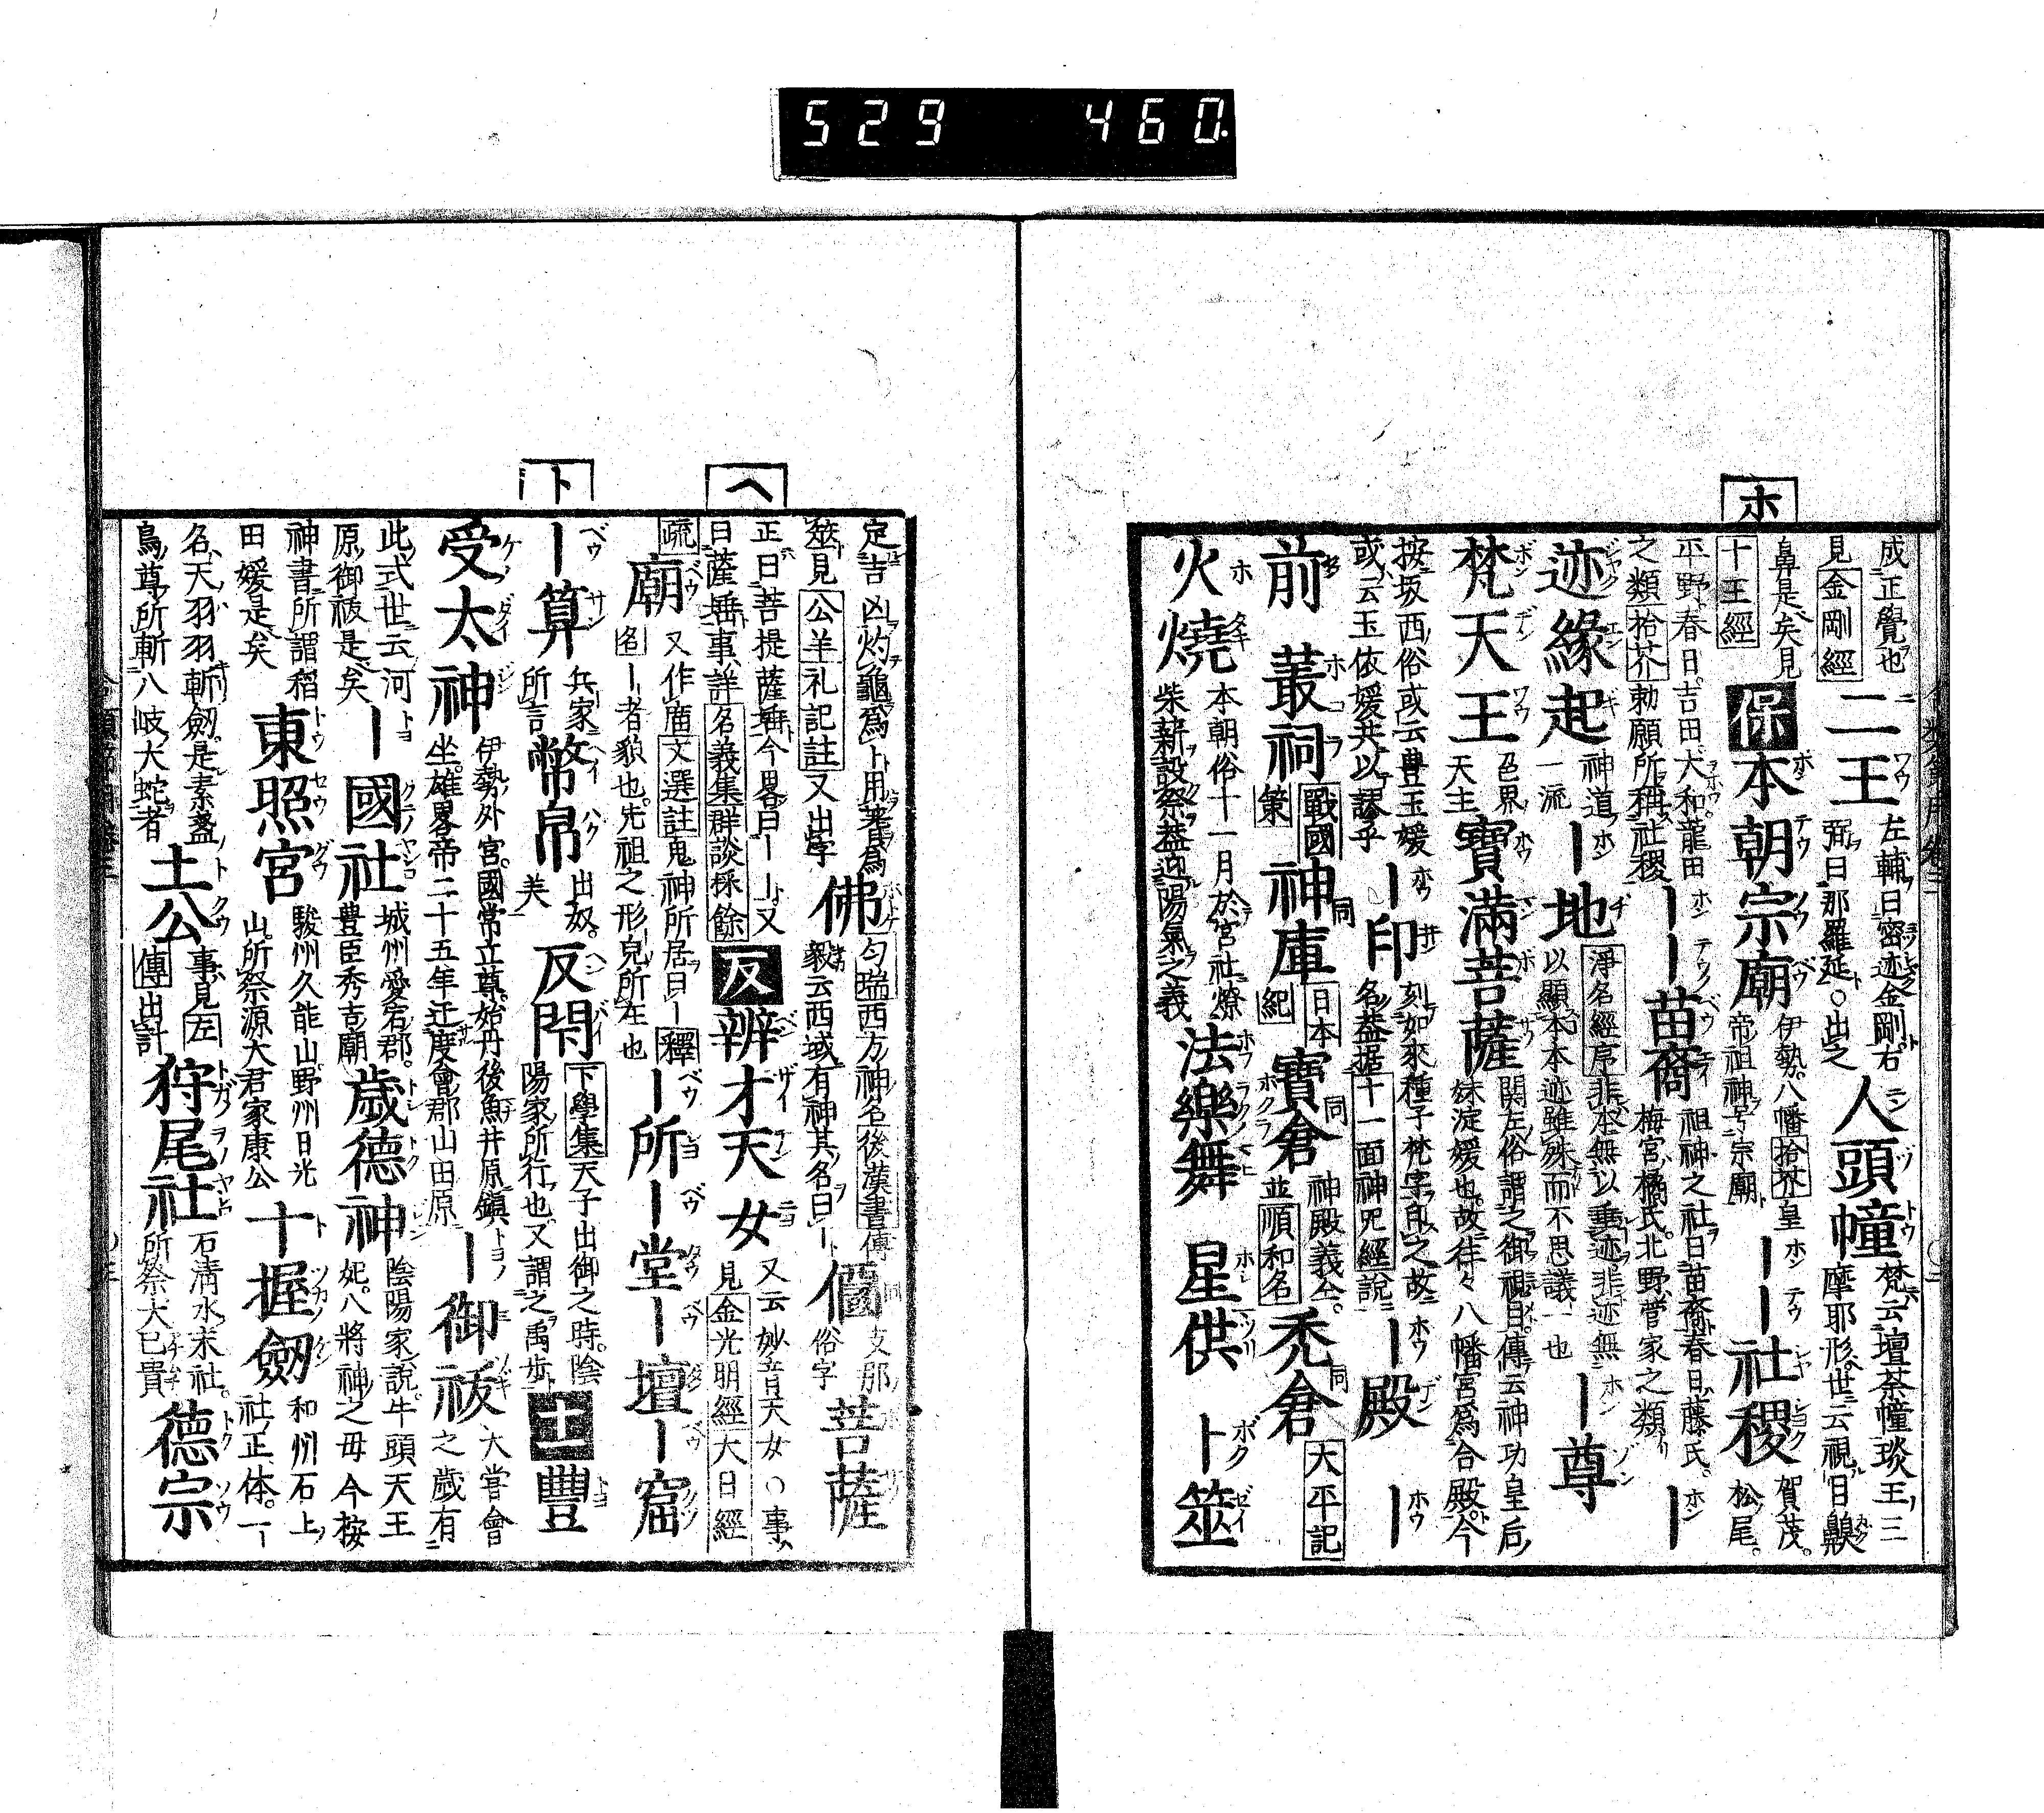 529 460
ホ
成正覺也
見金剛經
二王 左輔曰密迹金剛右弼曰那羅延○出之
人頭幢 梵云壇荼幢琰王三摩耶形世云視目𪖈鼻是矣見十王經
保
本朝宗廟 伊勢八幡拾芥皇帝祖神号宗廟
――社稷 賀茂松尾平野春日吉田大和龍田之類拾芥勅願所稱社稷
―――苗裔 祖神之社曰苗裔春日藤氏梅宮橘氏北野菅家之類
―迹緣起 神道一派
―地 淨名經序非本無以垂迹非迹無以顯本本迹雖殊而不思議一也
―尊
梵天王 色界天主
寶滿菩薩 関左俗謂之御視目傳云神功皇后妹淀媛也故往々八幡宮爲合殿今按坂西俗或云豊玉媛或云玉依媛共以謬乎
―印 刻如來種子梵字印之故名益据十一面神呪經說
―殿
―前
叢祠 戰國策
神庫 同 日本紀
寶倉 同 神殿義仝並順和名
禿倉 同 大平記
火燒 本朝俗十一月於宮社燎柴薪設祭益迎陽氣之義
法樂舞
星供
卜筮
定吉凶灼龜爲卜用蓍爲筮見公羊礼記註又出學
佛 匀瑞西方神名後漢書傳毅云西域有神其名曰―
𠏹 同 支那俗字
菩薩
正曰菩提薩埵今畧曰――又曰薩埵事詳名義集群談採餘
ヘ
反
辨才天女 又云妙音天女○事見金光明經大日經疏
廟 又作庿文選註鬼神所居曰―釋名―者貌也先祖之形皃所在也
―所
―堂
―壇
―窟
―算 兵家所言
幣帛 出奴美
反閇 下學集天子出御之時陰陽家所行也又謂之禹歩
ト
土
豐受太神 伊勢外宮國常立尊始丹後魚井原鎮坐雄畧帝二十五年迁度會郡山田原
―御祓 大嘗會之歲有此式世云河原御祓是矣
―國社 城州愛宕郡豊臣秀吉廟
歲德神 陰陽家說牛頭天王妃八將神之毋今按神書所謂稻田媛是矣
東照宮 駿州久能山野州日光山所祭源大君家康公
十握劒 和州石上社正体一名天羽羽斬劒是素盞烏尊所斬八岐大蛇者
土公 事見左傳出計
狩尾社 石清水末社所祭大已貴
德宗